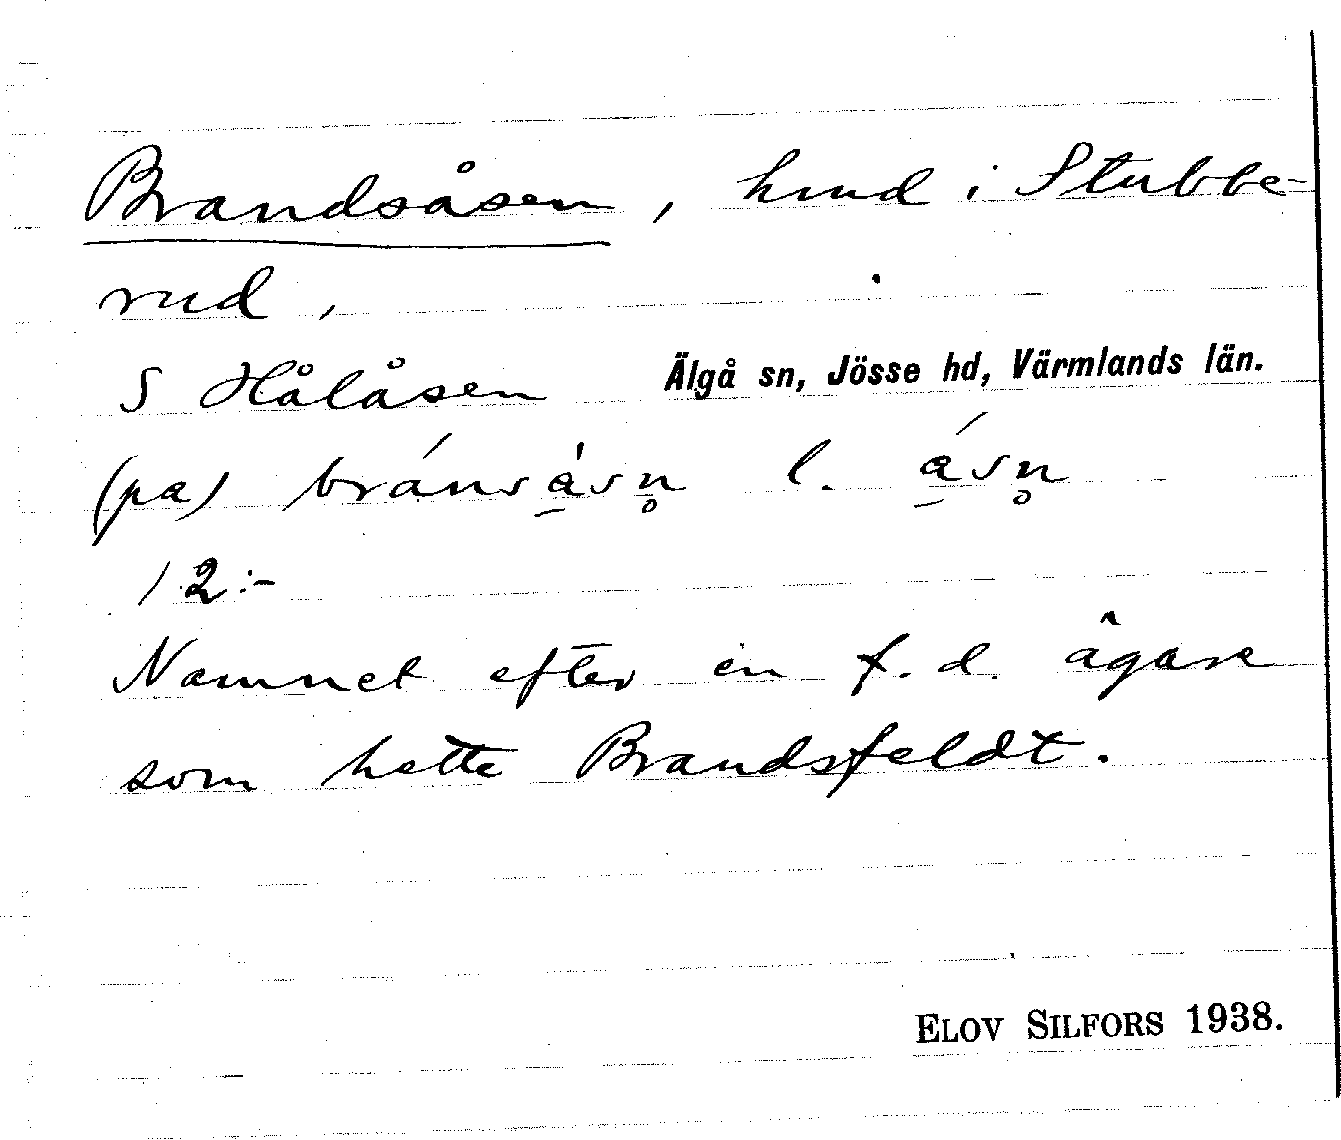 Brandsåsen, hmd i Stubbe-
rud,
S Hålåsen Älgå sn, Jösse hd, Värmlands län.
(pa) bránsa̲̍sn̥ l. á̲sn̥
12:-
Namnet efter en f.d. ägare
som hette Brandsfeldt.
ELOV SILFORS 1938.